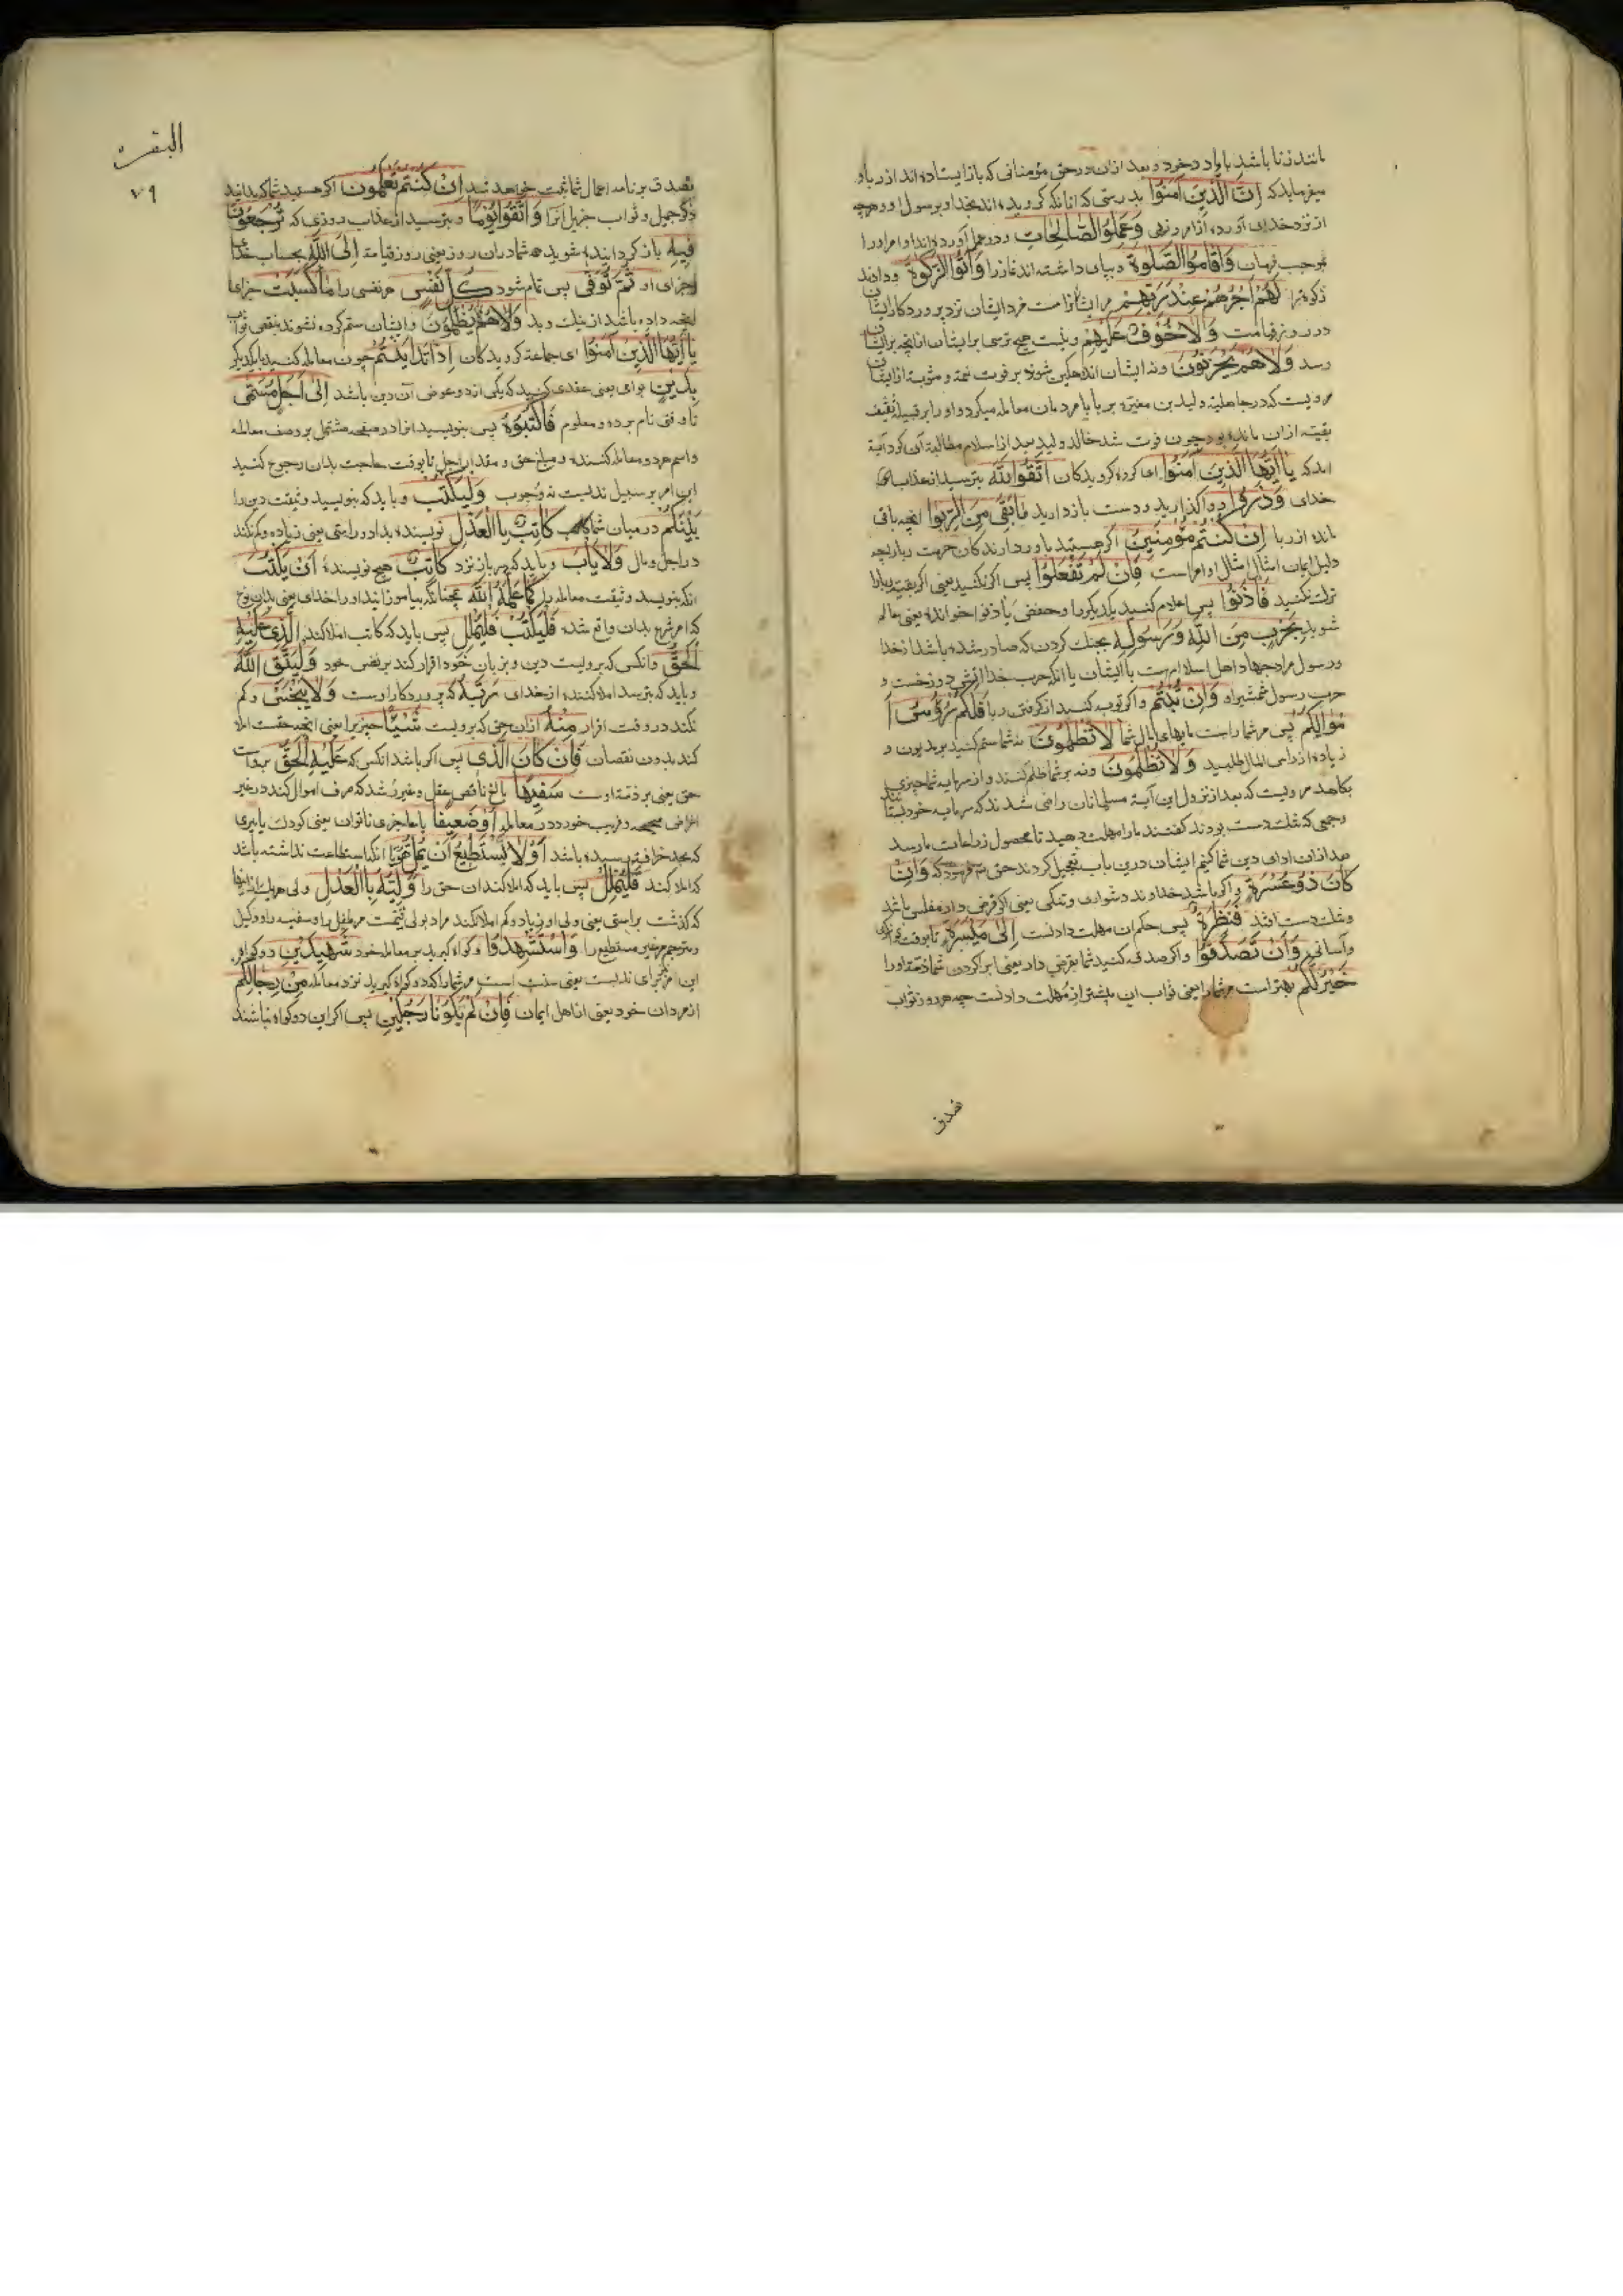 مانند زنا باشد یا زیاد در خود و بعد ازان در حق مؤمنانی که باز ایستاده اند از ربا و
میفرماید که اِنَّ الَّذِینَ آمَنُوا بدرستی که انانکه کرویده اند بخدا و برسول او و هرچه
از نزد خدای آورده از امر و نهی وَعَمِلُوا الصَّالِحَاتِ و در عمل آورده اند اوامر او را
بموجب فرمان وَاَقَامُوا الصَّلٰوةَ و بپای داشته اند نماز را وَآتَوُا الزَّکٰوةَ و داده اند
زکوة را لَهُمْ اَجْرُهُمْ عِنْدَ رَبِّهِمْ مر ایشانراست مزد ایشان نزد پروردکار ایشان
در روز قیامت وَلَا خَوْفٌ عَلَیْهِمْ و نیست هیچ ترسی بر ایشان از انچه بر ایشان
رسد وَلَا هُمْ یَحْزَنُونَ و نه ایشان اندهکین شوند بر فوت نعمة و مثوبة از ایشان
مرویست که در جاهلیة ولید بن مغیره بربا با مردمان معامله میکرد و او را بر قبیله ثقیف
بقیته ازان مانده بود چون فوت شد خالد ولید بعد از اسلام مطالبة آن کرد آیة
امد که یَا اَیُّهَا الَّذِینَ آمَنُوا ای کروه کرویدکان اتَّقُوا اللهَ بترسید از عذاب
خدای وَذَرُوا و واکذارید و دست بازدارید مَا بَقِیَ مِنَ الرِّبٰوا انچه باقی
مانده از ربا اِنْ کُنْتُمْ مُؤْمِنِینَ اکر هستید باور دارندکان حرمت ربا چه
دلیل ایمان امتثال اوامر است فَاِنْ لَمْ تَفْعَلُوا پس اکر نکنید یعنی اکر بقیت ربا را
ترک نکنید فَاْذَنُوا پس اعلام کنید یکدیکر را و حفص فاذنوا خوانده یعنی عالم
شوید بِحَرْبٍ مِنَ اللهِ وَرَسُولِهِ بجنک کردن که صادر شده باشد از خدا
و رسول مراد جهاد اهل اسلام است با ایشان یا انکه حرب خدا اتش دوزخست و
حرب رسول شمشیر او وَاِنْ تُبْتُمْ و اکر توبه کنید از کرفتن ربا فَلَکُمْ رُؤُسُ اَ
مْوَالِکُمْ پس مر شما راست مایهای مال شما لَا تَظْلِمُونَ نه شما ستم کنید بر مدیون و
زیاده از راس المال طلبید وَلَا تُظْلَمُونَ و نه بر شما ظلم کنند و از سرمایه شما چیزی
بکاهد مرویست که بعد از نزول این آیة مسلمانان راضی شدند که سرمایه خود بستانند
و جمعی که تنک دست بودند کفتند ما را مهلت دهید تا محصول زراعات ما رسد
بعد ازان ادای دین شما کنیم ایشان درین باب تعجیل کردند حق فرمود که وَاِنْ
کَانَ ذُو عُسْرَةٍ و اکر باشد خداوند دشواری و تنکی یعنی اکر قرض دار مفلس باشد
و تنک دست افتد فَنَظِرَةٌ پس حکم ان مهلت دادنست اِلٰی مَیْسَرَةٍ تا بوقت
و آسانی وَاَنْ تَصَدَّقُوا و اکر صدقه کنید شما بقرض دار یعنی ابرا کردن شما ذمة او را
خَیْرٌ لَکُمْ بهتر است مر شما را یعنی ثواب این بیشتر از مهلت دادنست چه هر روز ثواب
تصدق
البقرة
۷۹
تصدق بر نامه اعمال شما ثبت خواهد شد اِنْ کُنْتُمْ تَعْلَمُونَ اکر هستید شما که بدانید
ذکر جمیل و ثواب جزیل انرا وَاتَّقُوا یَوْمًا و بترسید از عذاب روزی که تُرْجَعُونَ
فِیهِ باز کردانیده شوید همه شما دران روز یعنی روز قیامة اِلَی اللهِ بحساب خدا
و جزای او ثُمَّ تُوَفّٰی پس تمام شود کُلُّ نَفْسٍ هر نفسی را مَا کَسَبَتْ جزای
انچه داده باشد از نیک و بد وَهُمْ لَا یُظْلَمُونَ و ایشان ستم کرده نشوند بنقص ثواب
یَا اَیُّهَا الَّذِینَ آمَنُوا ای جماعة کرویدکان اِذَا تَدَایَنْتُمْ چون معامله کنید با یکدیکر
بِدَیْنٍ بوای یعنی عقدی کنید که یکی از دو عوض آن دین باشد اِلٰی اَجَلٍ مُسَمًّی
تا وقتی نام برده و معلوم فَاکْتُبُوهُ پس بنویسید انرا در صفحه مشتمل بر وصف معامله
و اسم هر دو معامله کننده و مبلغ حق و مقدار اجل تا بوقت حاجت بدان رجوع کنید
این امر بر سبیل ندبست نه وجوب وَلْیَکْتُبْ و باید که بنویسد وثیقت دین را
بَیْنَکُمْ در میان شما کَاتِبٌ بِالْعَدْلِ نویسنده بداد و راستی یعنی زیاده و کم نکند
در اجل و مال وَلَا یَاْبَ و باید که سر باز نزند کَاتِبٌ هیچ نویسنده اَنْ یَکْتُبَ
انکه بنویسد وثیقت معامله را کَمَا عَلَّمَهُ اللهُ همچنانکه بیاموزانید او را خدای یعنی بدان نوع
که امر شرع بدان واقع شده فَلْیَکْتُبْ وَلْیُمْلِلِ پس باید که کاتب املا کند الَّذِی عَلَیْهِ
الْحَقُّ و انکس که برویست دین و بزبان خود اقرار کند بر نفس خود وَلْیَتَّقِ اللهَ
و باید که بترسد املا کننده از خدای رَبَّهُ که پروردکار اوست وَلَا یَبْخَسْ و کم
نکند در وقت اقرار مِنْهُ ازان حق که برویست شَیْئًا چیزیرا یعنی انچه حقست املا
کند بدون نقصان فَاِنْ کَانَ الَّذِی پس اکر باشد انکس که عَلَیْهِ الْحَقُّ بروست
حق یعنی بر ذمة اوست سَفِیهًا بالغ ناقص عقل و غیر رشد که صرف اموال کند در غیر
اغراض صحیحه و فریب خورد در معامله اَوْ ضَعِیفًا یا عاجزی ناتوان یعنی کودک یا پیری
که بحد خرافت رسیده باشد اَوْ لَا یَسْتَطِیعُ اَنْ یُمِلَّ هُوَ یا انکه استطاعت نداشته باشد
که املا کند فَلْیُمْلِلْ پس باید که املا کند ان حق را وَلِیُّهُ بِالْعَدْلِ ولی هر یک از اینها
که کذشت براستی یعنی ولی او زیاد و کم املا نکند مراد بولی قیمست مر طفل را و سفیه را و وکیل
و مترجم مر غیر مستطیع را وَاسْتَشْهِدُوا و کواه کیرید بر معامله خود شَهِیدَیْنِ دو کواه و
این امر برای ندبست یعنی سنت است مر شما را که دو کواه کیرید نزد معامله مِنْ رِجَالِکُمْ
از مردان خود یعنی از اهل ایمان فَاِنْ لَمْ یَکُونَا رَجُلَیْنِ پس اکر این دو کواه نباشند